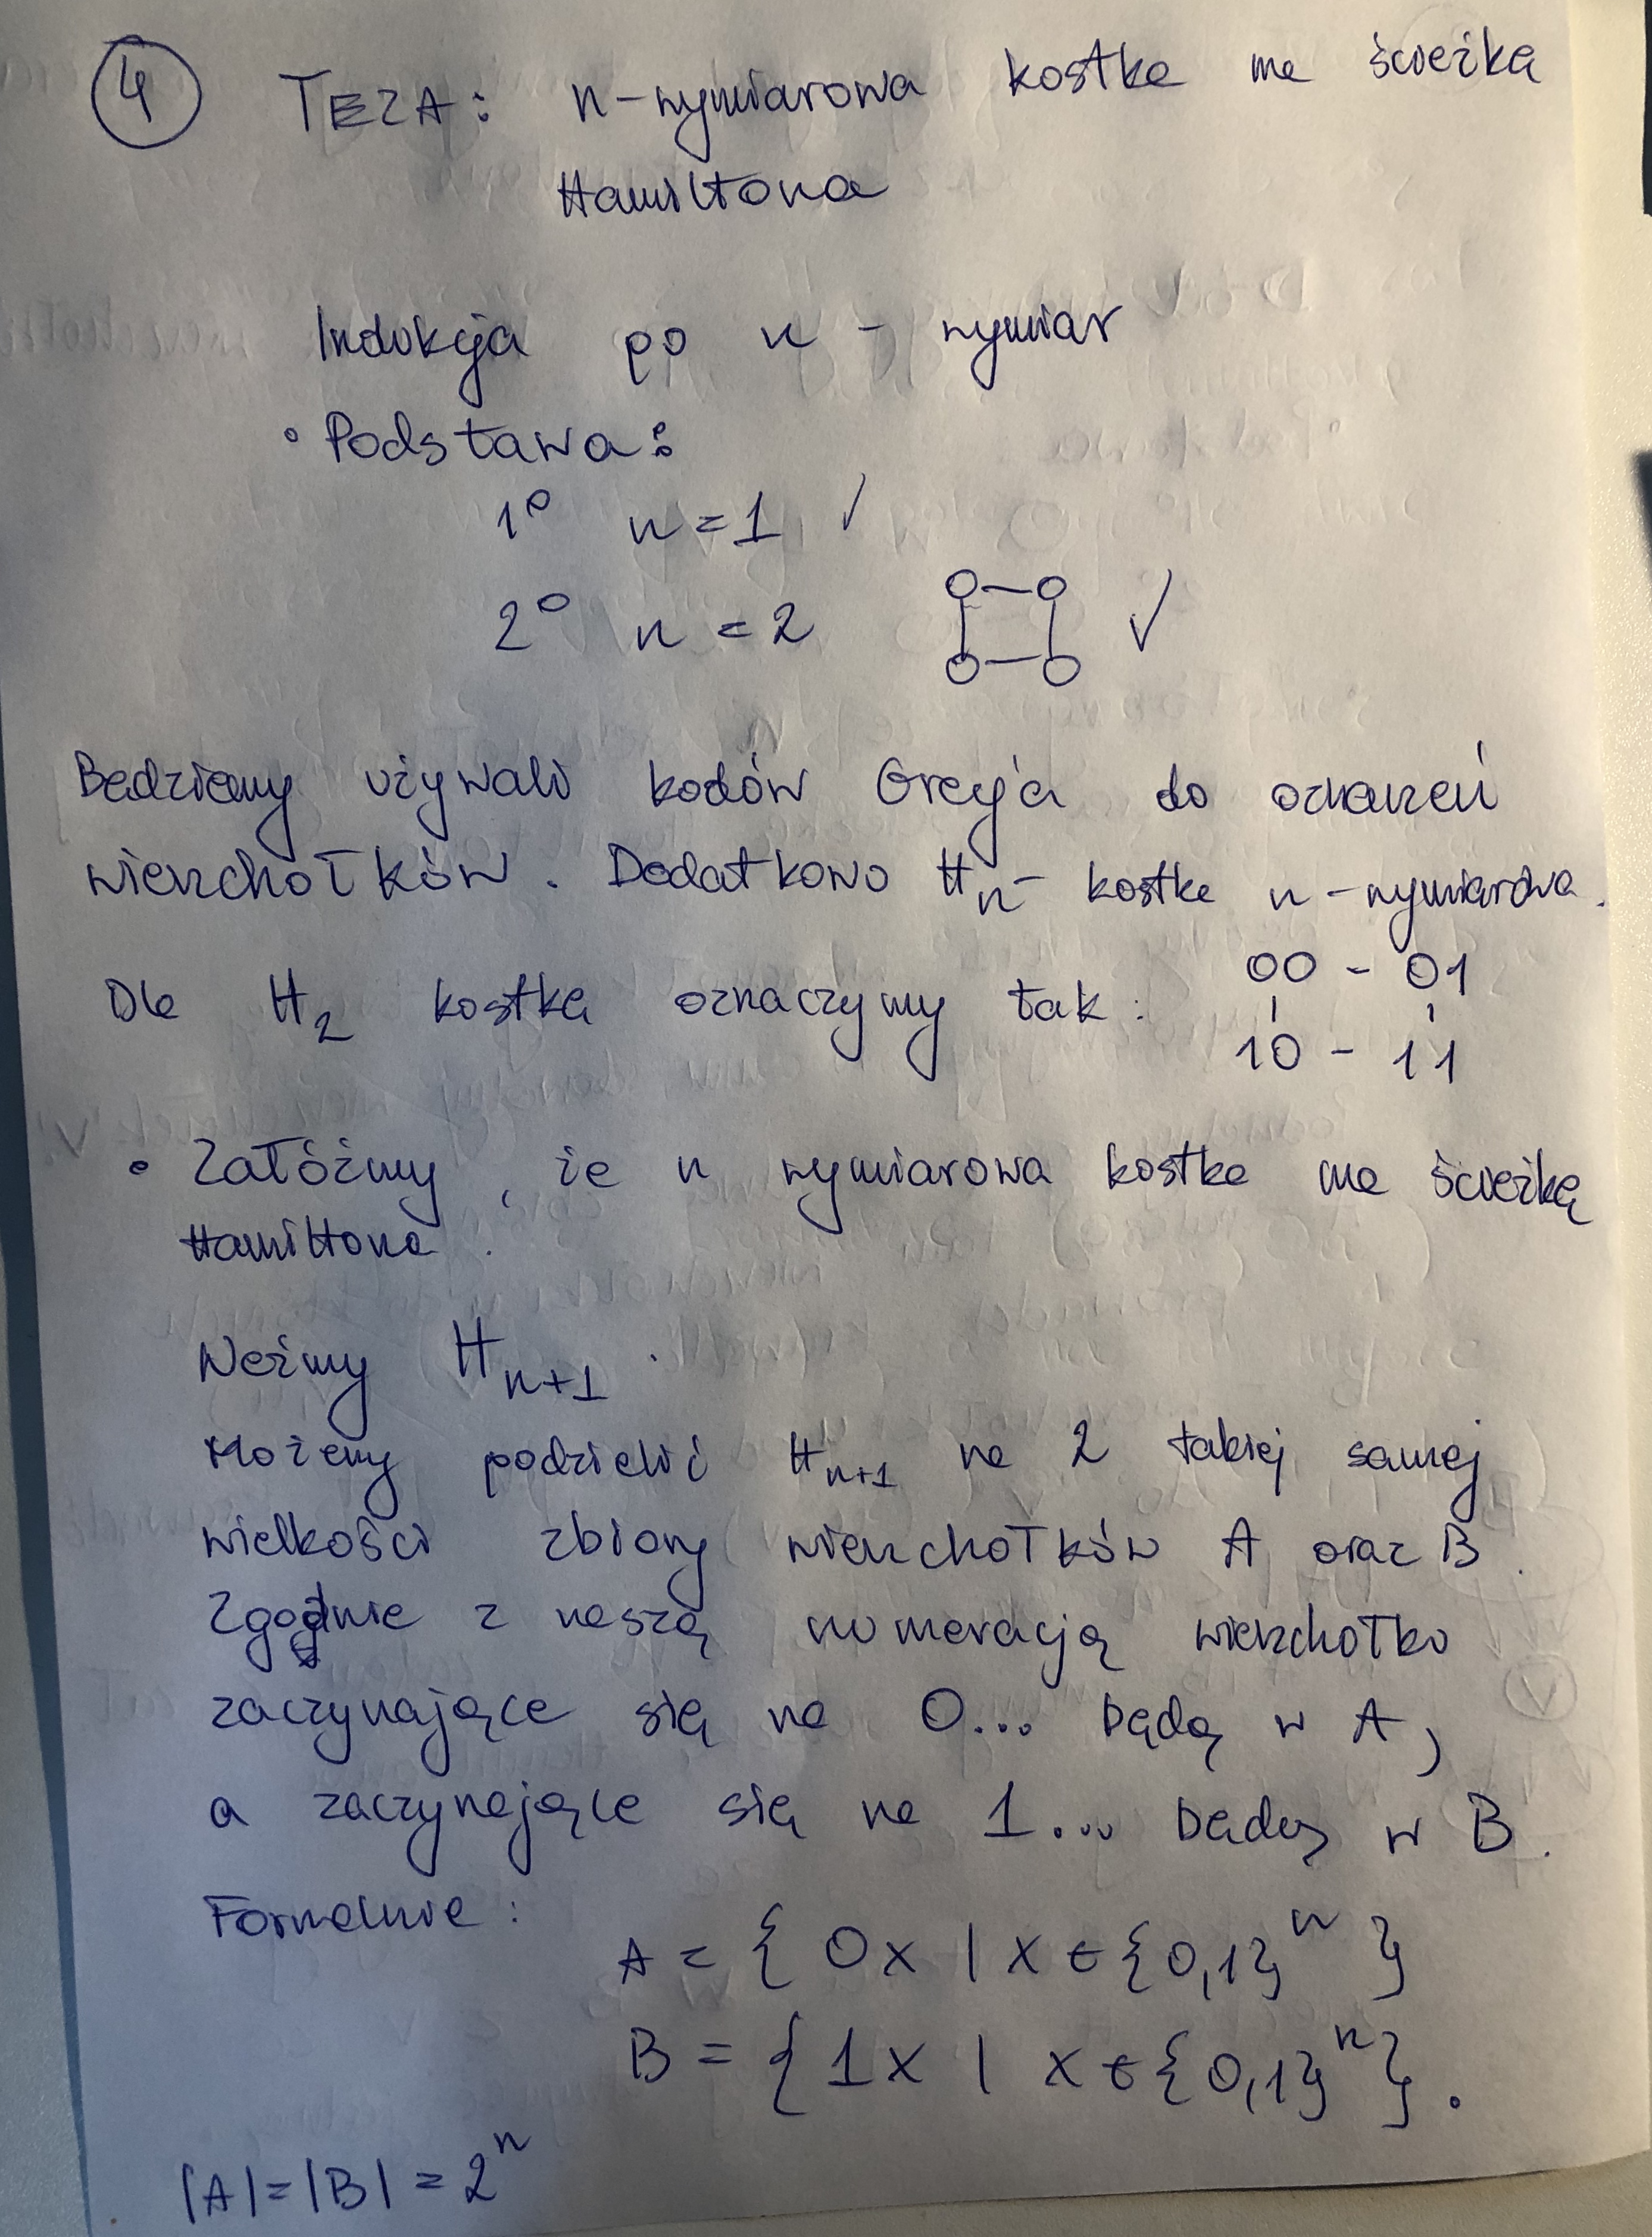 4 TEZA: n-wymiarowa kostka ma ścieżkę
Hamiltona
Indukcja po n - wymiar
• Podstawa:
1° n = 1 ✓
2° n = 2 ✓
Będziemy używali kodów Grey'a do oznaczeń
wierzchołków. Dodatkowo Hn - kostka n-wymiarowa.
00 - 01
Dla H2 kostkę oznaczymy tak:
10 - 11
• Załóżmy, że n wymiarowa kostka ma ścieżkę
Hamiltona.
Weźmy Hn+1.
Możemy podzielić Hn+1 na 2 takiej samej
wielkości zbiory wierzchołków A oraz B.
Zgodnie z naszą numeracją wierzchołki
zaczynające się na 0... będą w A,
a zaczynające się na 1... będą w B.
Formalnie:
A = { 0x | x ∈ {0,1}ⁿ }
B = { 1x | x ∈ {0,1}ⁿ }.
|A| = |B| = 2ⁿ